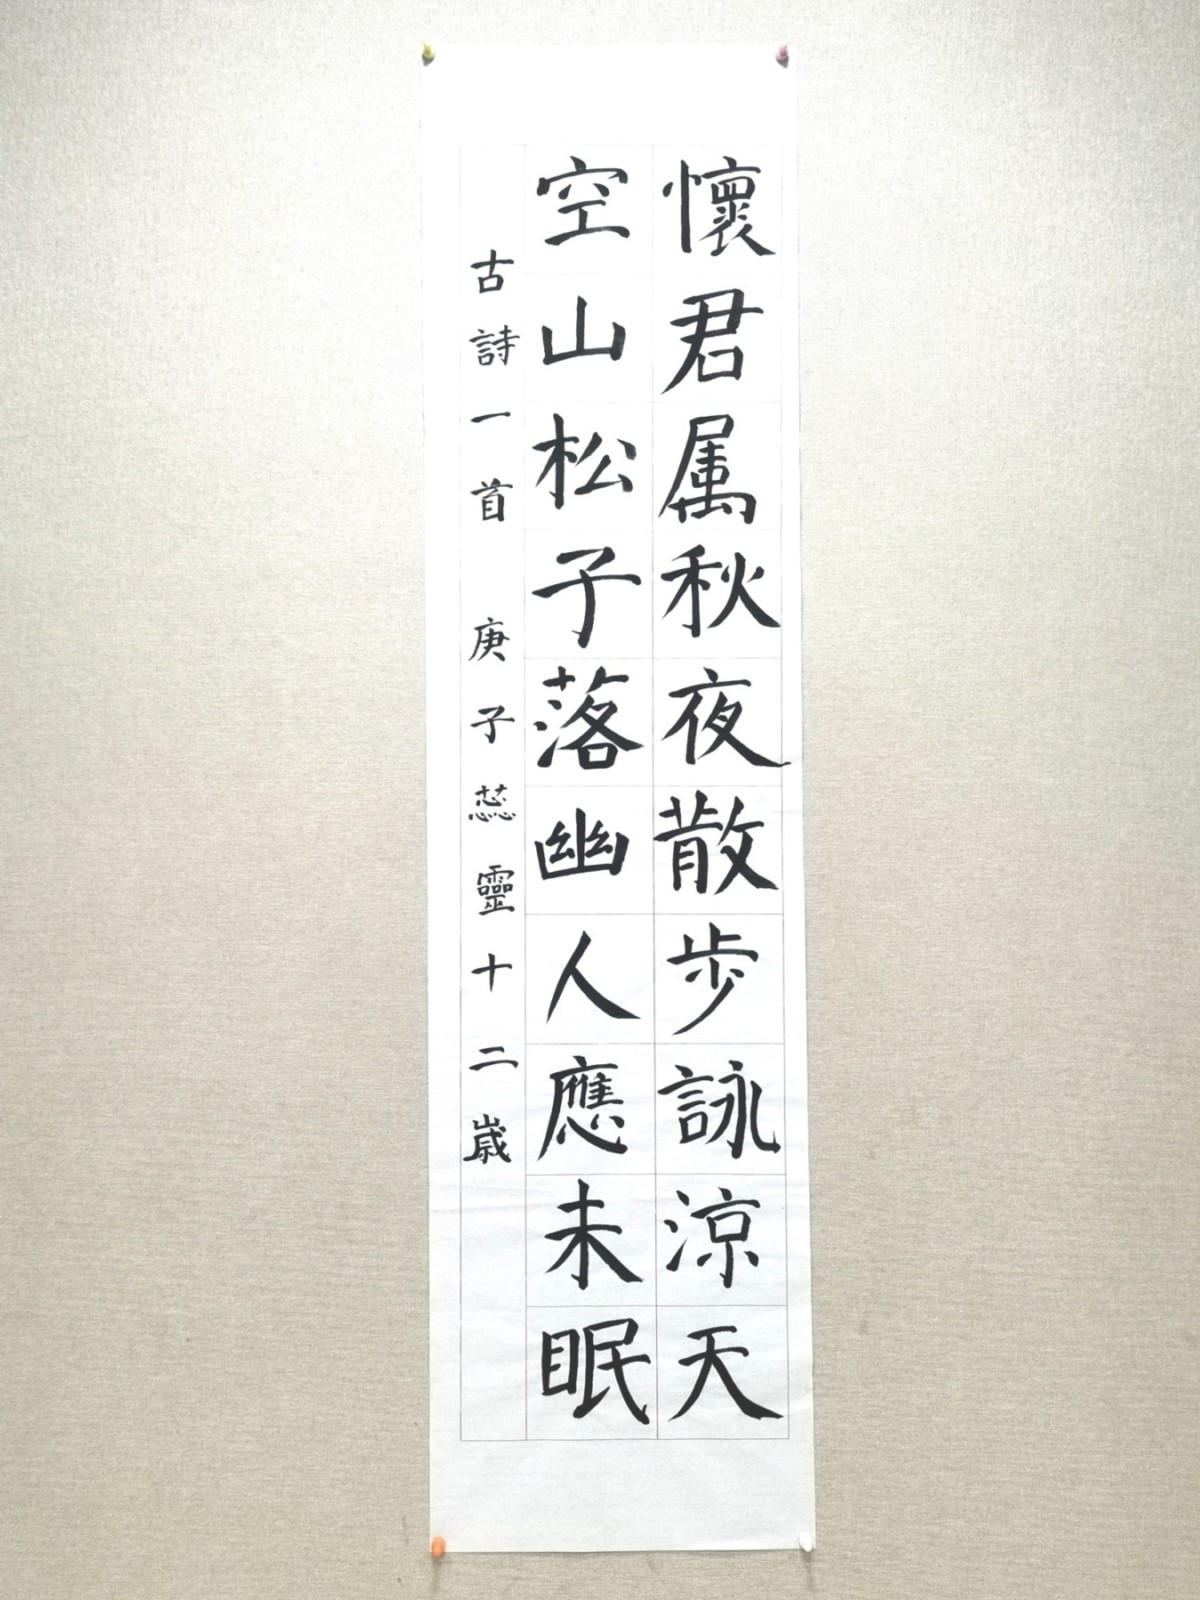 懷君属秋夜散步詠涼天
空山松子落幽人應未眠
古詩一首 庚子蕊靈十二歲